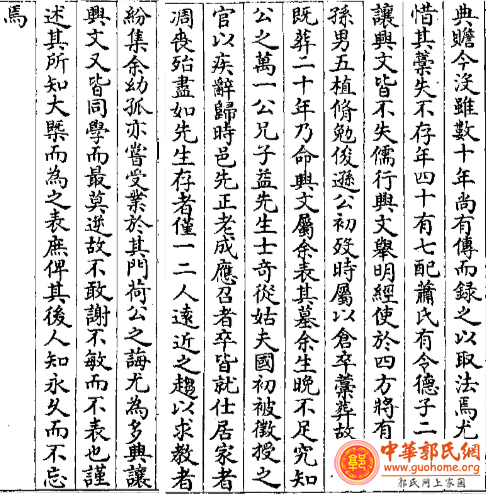 典贍今沒雖數十年尚有傳而録之以取法焉尤
惜其藁失不存年四十有七配蕭氏有令德子二
讓興文皆不失儒行興文舉明經使於四方將有
孫男五植脩勉俊遜公初殁時屬以倉卒藁葬故
既葬二十年乃命興文屬余表其墓余生晚不足究知
公之萬一公兄子益先生士奇從姑夫國初被徴授之
官以疾辭歸時邑先正老成應召者卒皆就仕居家者
凋喪殆盡如先生存者僅一二人遠近之趨以求教者
紛集余幼孤亦嘗受業於其門荷公之誨尤為多與讓
興文又皆同學而最莫逆故不敢謝不敏而不表也謹
述其所知大槩而為之表庶俾其後人知永久而不忘
焉
中華郭氏網
www.guohome.org
郭氏网上家園